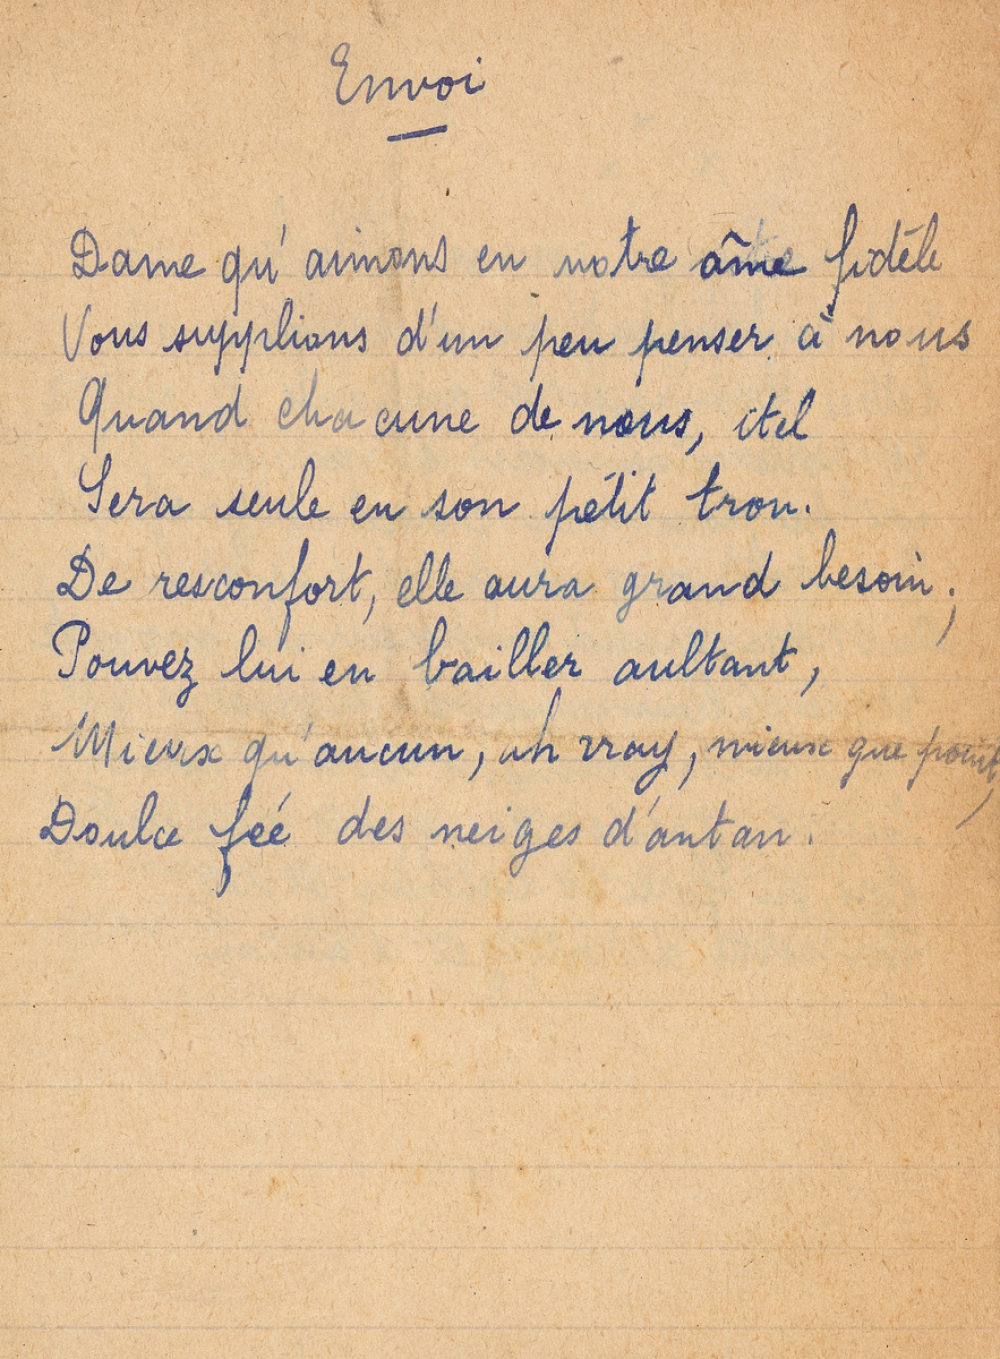 Envoi
Dame qu'aimons en notre âme fidèle
Vous supplions d'un peu penser à nous
Quand chacune de nous, itel
Sera seule en son petit trou.
De resconfort, elle aura grand besoin ;
Pouvez lui en bailler aultant,
Mieux qu'aucun, ah vray, mieux que point,
Doulce feé des neiges d'antan.